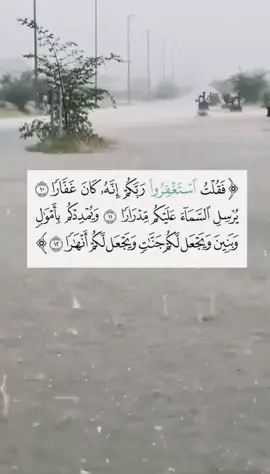 ﴿ فَقُلْتُ ٱسْتَغْفِرُوا۟ رَبَّكُمْ إِنَّهُۥ كَانَ غَفَّارًا ١٠
يُرْسِلِ ٱلسَّمَآءَ عَلَيْكُم مِّدْرَارًا ١١ وَيُمْدِدْكُم بِأَمْوَٰلٍ
وَبَنِينَ وَيَجْعَل لَّكُمْ جَنَّـٰتٍ وَيَجْعَل لَّكُمْ أَنْهَـٰرًا ١٢ ﴾